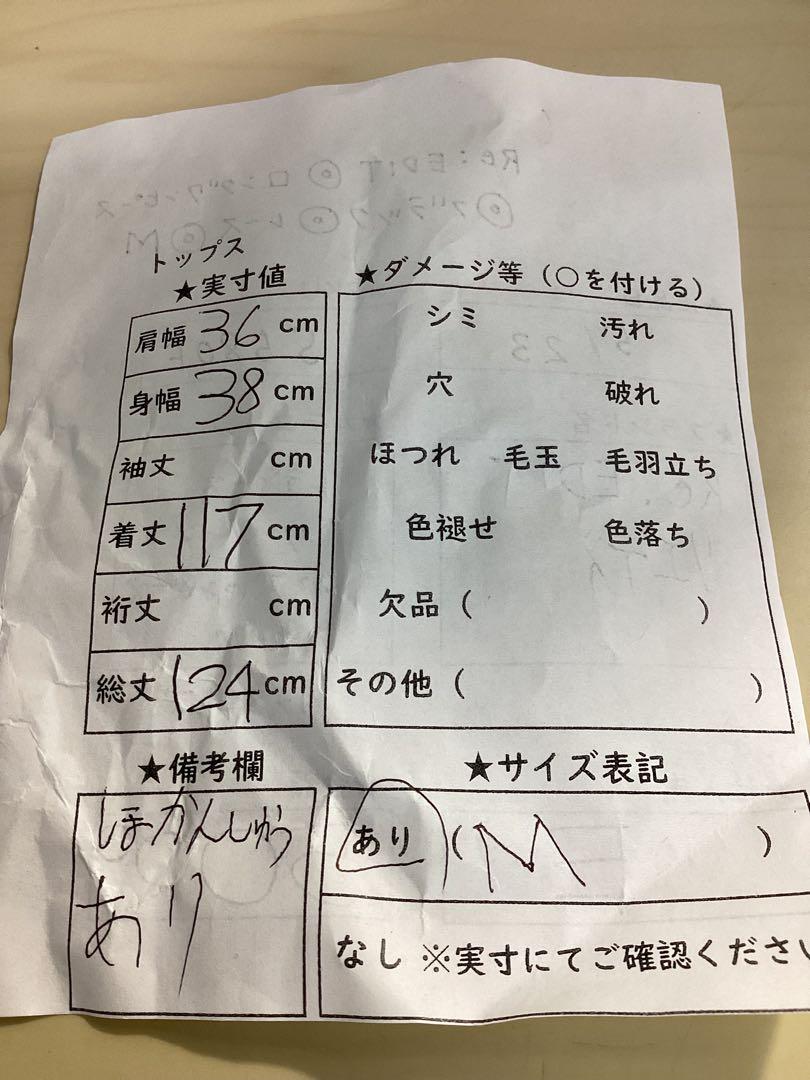 トップス
★実寸値
肩幅 36 cm
身幅 38 cm
袖丈 cm
着丈 117 cm
裄丈 cm
総丈 124 cm
★ダメージ等（○を付ける）
シミ 汚れ
穴 破れ
ほつれ 毛玉 毛羽立ち
色褪せ 色落ち
欠品（ ）
その他（ ）
★備考欄
ほかんしゅう
あり
★サイズ表記
あり（M ）
なし ※実寸にてご確認ください
Re:EDIT ◎ロングワンピース
◎ブラック◎レース◎M